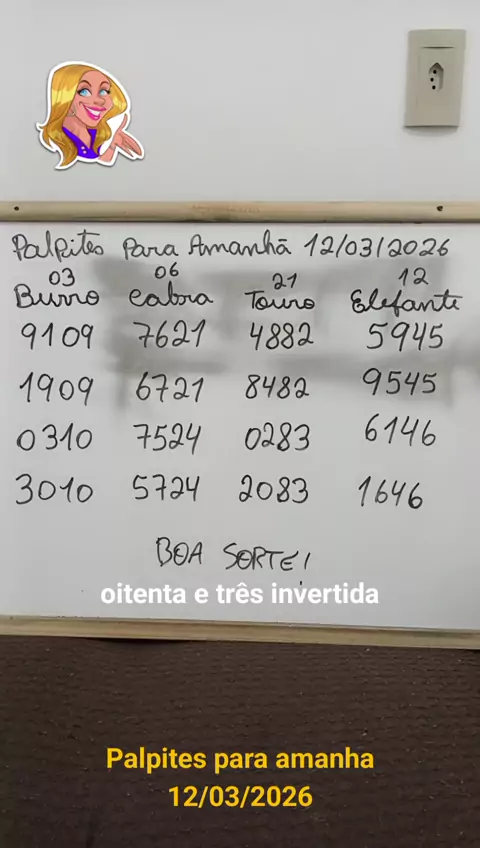 Palpites Para Amanhã 12/03/2026
03 06 21 12
Burro Cabra Touro Elefante
9109 7621 4882 5945
1909 6721 8482 9545
0310 7524 0283 6146
3010 5724 2083 1646
BOA SORTE!
oitenta e três invertida
Palpites para amanha
12/03/2026